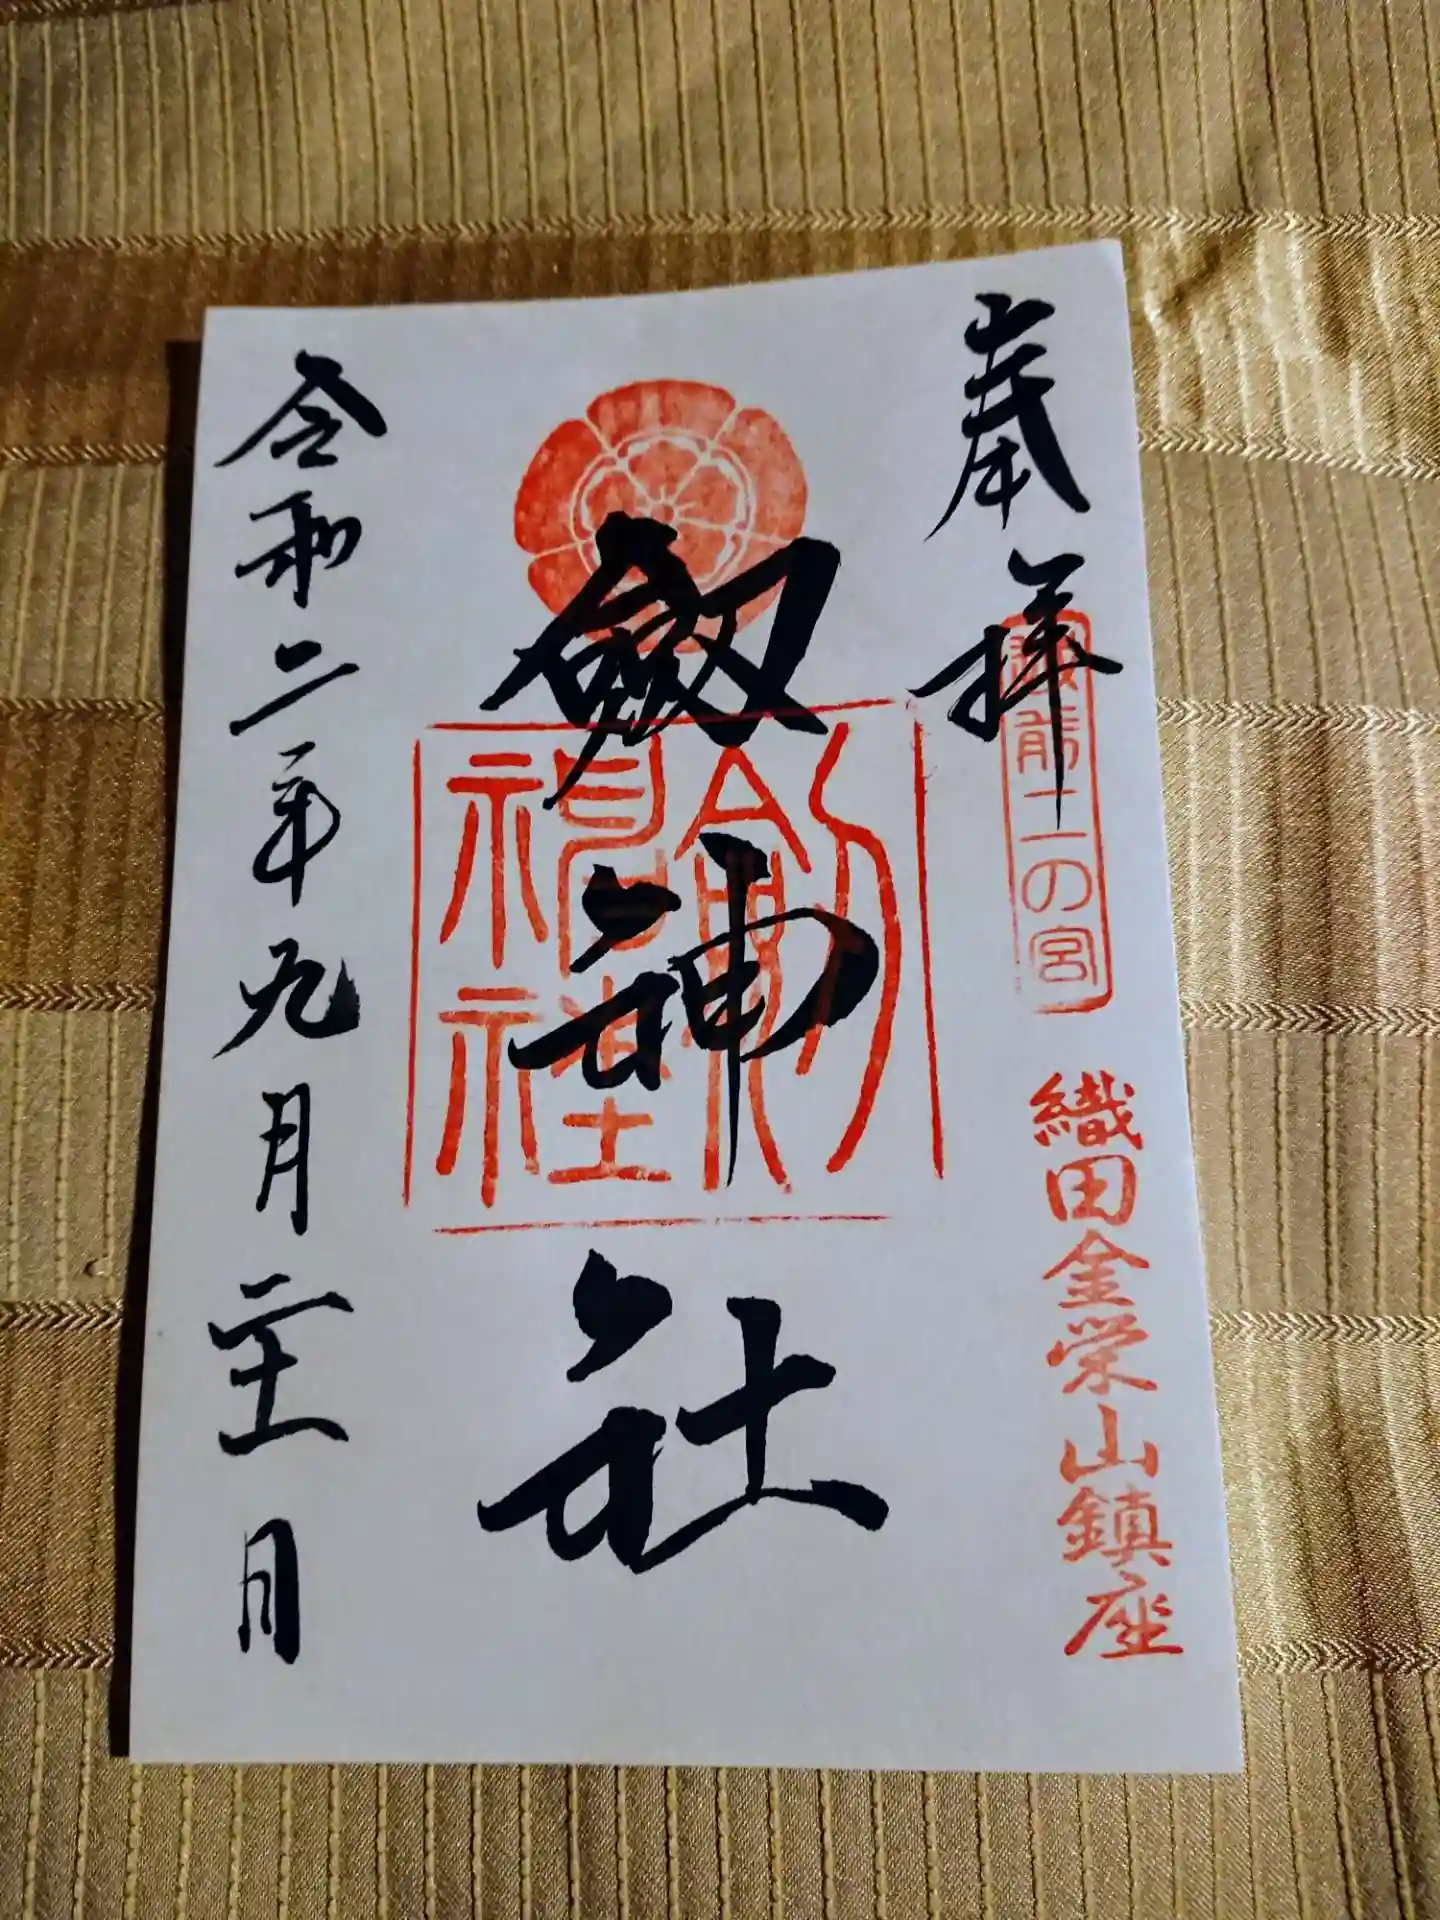 奉拝
越前二の宮
織田金栄山鎮座
劔神社
劔神社
令和二年九月二十一日